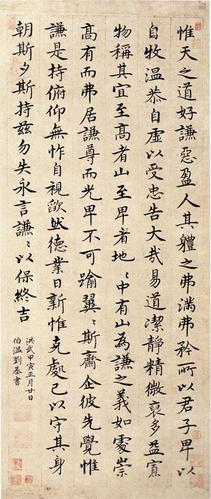 惟天之道好謙惡盈人其體之弗滿弗矜所以君子卑以
自牧溫恭自虛以受忠告大哉易道潔靜精微裒多益寡
物稱其宜至高者山至卑者地〻中有山為謙之義如處崇
高有而弗居謙尊而光卑不可踰翼〻斯齋企彼先覺惟
謙是持俯仰無怍自視欿然德業日新惟克處己以守其身
朝斯夕斯持茲勿失永言謙〻以保終吉
洪武甲寅月廿日
伯溫劉基書